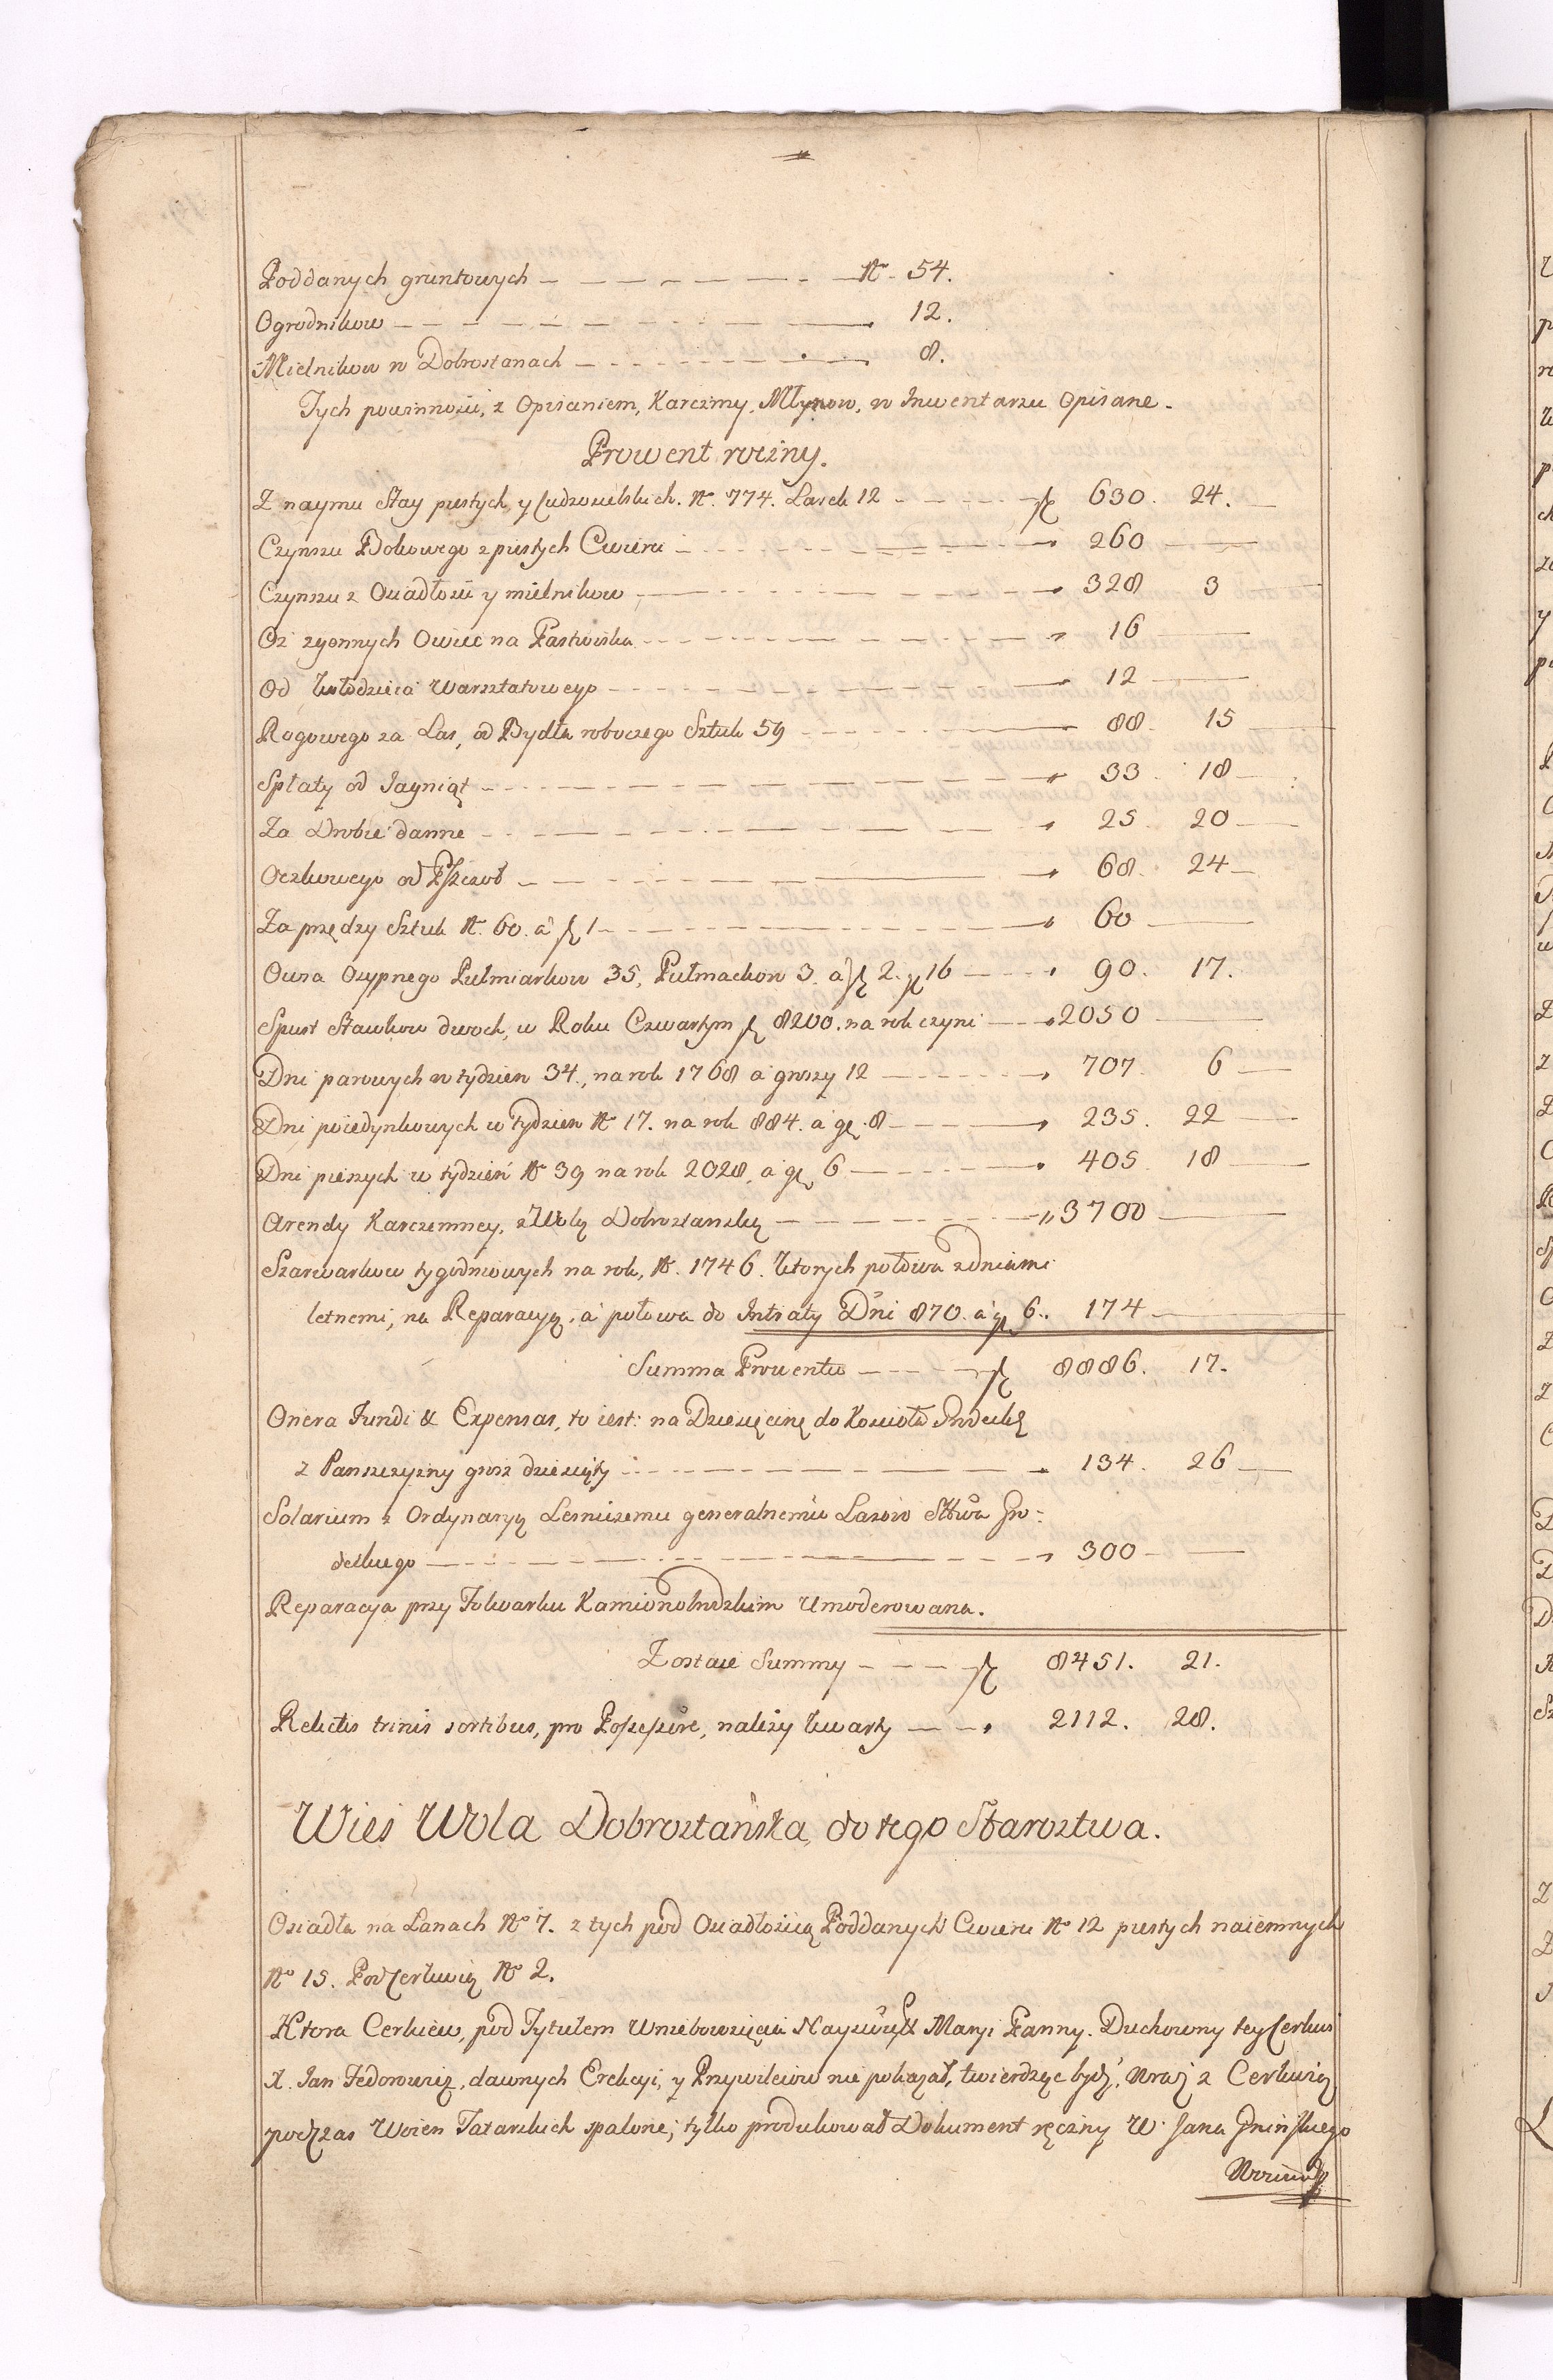 Poddanych gruntowych — N° 54.
Ogrodnikow — 12.
Mielnikow w Dobrostanach — 8.
Tych powinności, z Opisaniem, Karczmy, Młynow, w Inwentarzu Opisane.
Prowent roczny.
Z naymu Stay pustych y Cudzosielskich. N° 774. Lasek 12 — 630. 24.
Czynszu Rokowego z pustych Cwierci — 260
Czynszu z Osiadłości y mielnikow — 328 3
Od zgonnych Owiec na Pastwiska — 16
Od Kołodzieia Warsztatowego — 12
Rogowego za Las, od Bydła roboczego Sztuk 59 — 88. 15
Spłaty od Jagniąt — 33. 18
Za Drobie danne — 25. 20
Oczkowego od Pszczoł — 68. 24
Za przędzy Sztuk N° 60. a zł 1 — 60
Owsa Osypnego Pułmiarkow 35, Pułmackow 3. a zł 2. gr 16 — 90. 17.
Spust Stawkow dwoch, w Roku Czwartym zł 8200. na rok czyni — 2050
Dni parowych w tydzien 34., na rok 1768 a groszy 12 — 707. 6
Dni poiedynkowych w tydzien N° 17. na rok 884. a gr. 8 — 235. 22
Dni pieszych w tydzień N° 39 na rok 2028. a gr 6 — 405. 18
Arendy Karczemney, z Wolą Dobrostańską — 3700
Szarwarkow tygodniowych na rok, N° 1746. Ktorych połowa z dniami
letnemi, na Reparacyą, a połowa do Intraty Dni 870. a gr 6. 174
Summa Prowentu — zł 8886. 17.
Onera Fundi & Expensas, to iest: na Dziesięcinę do Koscioła
z Panszczyzny grosz dziesiąty — 134. 26
Solarium z Ordynaryą Lesniczemu generalnemu Lasow Sttwa Gro-
deckiego — 300
Reparacya przy Folwarku Kamionobrodzkim Umoderowana.
Zostaie Summy — zł 8451. 21.
Relictis trinis sortibus, pro Possessore, należy kwarty — 2112. 28.
Wieś Wola Dobrostańska, do tego Starostwa.
Osiadła na Łanach N° 7. z tych pod Osiadłością Poddanych Cwierci N° 12 pustych naiemnych
N° 15. Pod Cerkwią N° 2.
Ktora Cerkiew, pod Tytułem Wniebowzięcia Nayświęt Maryi Panny. Duchowny tey Cerkwi
X. Jan Fedorowicz, dawnych Erekcyi, y Przywilejow nie pokazał, twierdząc bydź, wraz z Cerkwią
podczas Woien Tatarskich spalone; tylko produkował Dokument ręczny W. Jana Gninskiego